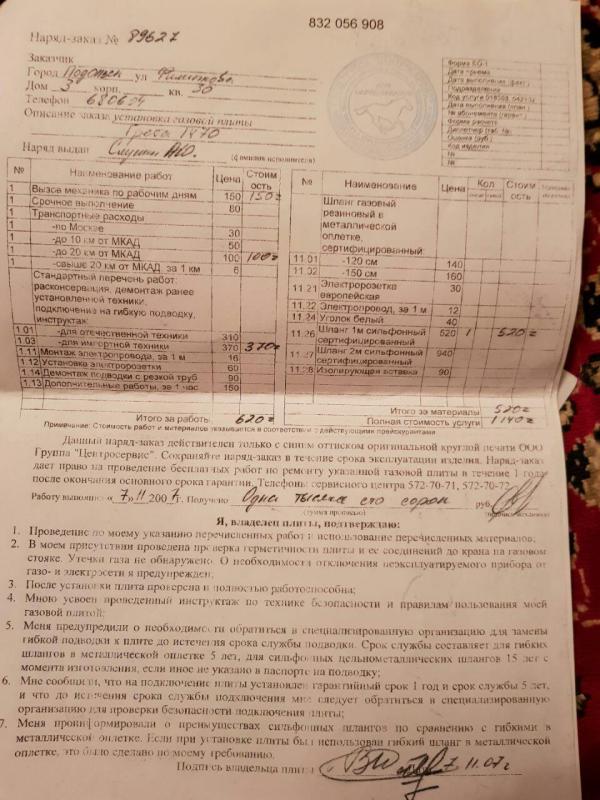 832 056 908
Наряд-заказ № 89627
Заказчик
Город Подольск ул
Дом 3 корп. кв. 30
Телефон
Описание заказа установка газовой плиты
Греса 1470
Наряд выдан
(фамилия исполнителя)
Форма КО-1
Дата приема
Дата выполнения (факт.)
Подразделение
Код услуги
Дата выполнения (план.)
№ абонемента (гарант.)
Форма расчета
Диспетчер (таб. №)
Оценка (руб.)
Код изделия
№
№
№ Наименование работ Цена Стоимость
1 Вызов механика по рабочим дням 150 150=
1 Срочное выполнение 80
1 Транспортные расходы
1 -по Москве 30
1 -до 10 км от МКАД 50
1 -до 20 км от МКАД 100 100=
1 -свыше 20 км от МКАД, за 1 км 6
Стандартный перечень работ:
расконсервация, демонтаж ранее
установленной техники,
подключение на гибкую подводку,
инструктаж
1.01 -для отечественной техники 310
1.03 -для импортной техники 370 370=
1.11 Монтаж электропровода, за 1 м 16
1.12 Установка электророзетки 60
1.14 Демонтаж подводки с резкой труб 90
1.13 Дополнительные работы, за 1 час 150
Итого за работы: 620=
№ Наименование Цена Кол Стоимость
Шланг газовый
резиновый в
металлической
оплетке,
сертифицированный:
11.01 -120 см 140
11.02 -150 см 160
11.21 Электророзетка
европейская 30
11.22 Электропровод, за 1 м 12
11.24 Уголок белый 40
11.26 Шланг 1м сильфонный
сертифицированный 520 1 520=
11.27 Шланг 2м сильфонный
сертифицированный 940
11.28 Изолирующая вставка 90
Итого за материалы 520=
Полная стоимость услуги 1140=
Примечание: Стоимость работ и материалов указывается в соответствии с действующими прейскурантами
Данный наряд-заказ действителен только с синим оттиском оригинальной круглой печати ООО
Группа "Центросервис". Сохраняйте наряд-заказ в течение срока эксплуатации изделия. Наряд-заказ
дает право на проведение бесплатных работ по ремонту указанной газовой плиты в течение 1 года
после окончания основного срока гарантии. Телефоны сервисного центра 572-70-71, 572-70-72
Работу выполнил «7» 11 2007г. Получено Одна тысяча сто сорок руб.
(сумма прописью)
Я, владелец плиты, подтверждаю:
1. Проведение по моему указанию перечисленных работ и использование перечисленных материалов;
2. В моем присутствии проведена проверка герметичности плиты и ее соединений до крана на газовом
стояке. Утечки газа не обнаружено. О необходимости отключения неэксплуатируемого прибора от
газо- и электросети я предупрежден;
3. После установки плита проверена и полностью работоспособна;
4. Мною усвоен проведенный инструктаж по технике безопасности и правилам пользования моей
газовой плитой;
5. Меня предупредили о необходимости обратиться в специализированную организацию для замены
гибкой подводки к плите до истечения срока службы подводки. Срок службы составляет для гибких
шлангов в металлической оплетке 5 лет, для сильфонных цельнометаллических шлангов 15 лет с
момента изготовления, если иное не указано в паспорте на подводку;
6. Мне сообщили, что на подключение плиты установлен гарантийный срок 1 год и срок службы 5 лет,
и что до истечения срока службы подключения мне следует обратиться в специализированную
организацию для проверки безопасности подключения плиты;
7. Меня проинформировали о преимуществах сильфонных шлангов по сравнению с гибкими в
металлической оплетке. Если при установке плиты был использован гибкий шланг в металлической
оплетке, это было сделано по моему требованию.
Подпись владельца плиты 7.11.07г